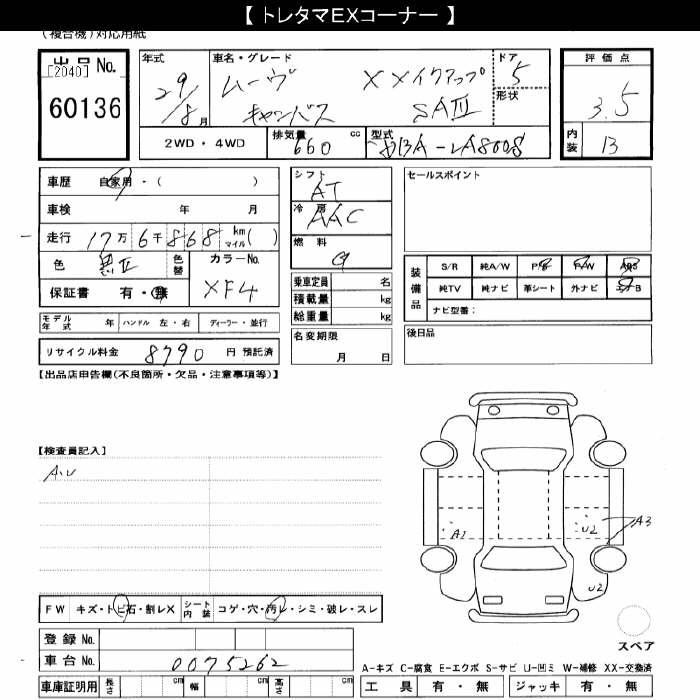 【 トレタマEXコーナー 】
(複合機)対応用紙
出品 No.
[2040]
60136
年式
29/8 月
車名・グレード
ムーヴ
キャンバス
XメイクアップSAⅢ
ドア
5
形状
評価点
3.5
内装 B
2WD・4WD
排気量 660 cc
型式 DBA-LA800S
車歴 自家用・( )
車検 年 月
走行 17万 6千 868 km マイル( )
色 黒
色替
カラーNo.
XF4
保証書 有・無
シフト
AT
冷房
AAC
燃料
G
乗車定員 名
積載量 kg
総重量 kg
セールスポイント
装備品
S/R 純A/W P/S P/W ABS
純TV 純ナビ 革シート 外ナビ エアB
ナビ型番:
モデル年式 年 ハンドル 左・右 ディーラー・並行
リサイクル料金 8790 円 預託済
名変期限
月 日
後日品
【出品店申告欄(不良箇所・欠品・注意事項等)】
【検査員記入】
A.U
A1
U2
A3
U2
FW キズ・トビ石・割レX
シート内装 コゲ・穴・汚レ・シミ・破レ・スレ
登録 No.
車台 No. 0075262
スペア
A-キズ C-腐食 E-エクボ S-サビ U-凹ミ W-補修 XX-交換済
車庫証明用 長さ cm 幅 cm 高さ cm
工具 有・無 ジャッキ 有・無